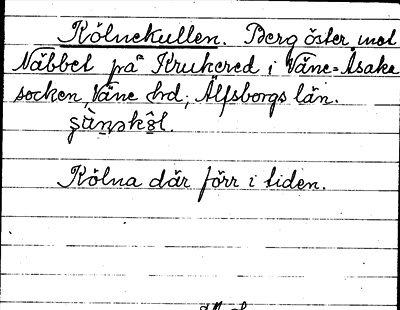 Kölnekullen. Berg öster mot
Näbbet på Krukered i Väne-Åsaka
socken, Väne hd, Älfsborgs län.
Kölna där förr i tiden.